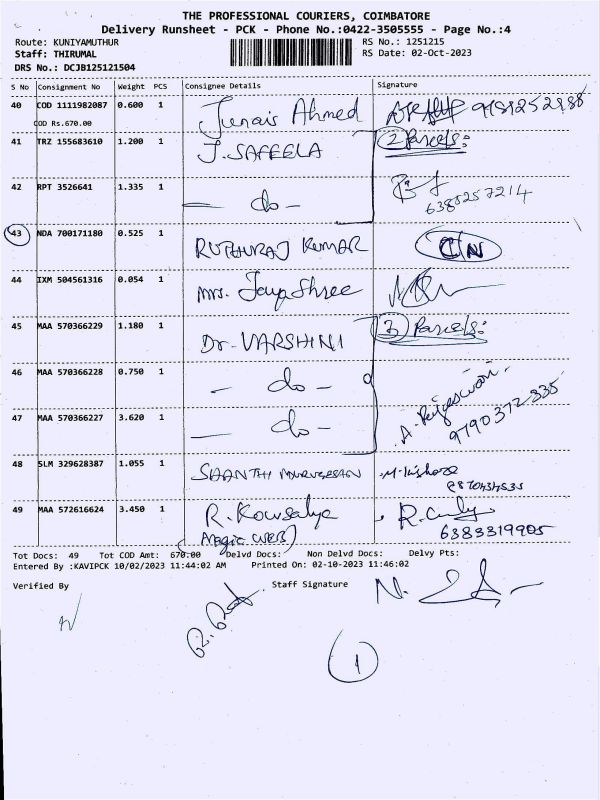 THE PROFESSIONAL COURIERS, COIMBATORE
Delivery Runsheet - PCK - Phone No.:0422-3505555 - Page No.:4
Route: KUNIYAMUTHUR
RS No.: 1251215
Staff: THIRUMAL
RS Date: 02-Oct-2023
DRS No.: DCJB125121504
S No Consignment No Weight PCS Consignee Details Signature
40 COD 1111982087 0.600 1 Junais Ahmed
COD Rs.670.00
41 TRZ 155683610 1.200 1 J. SAFEELA 2 Parcels:
42 RPT 3526641 1.335 1 — do — 6385257214
43 NDA 700171180 0.525 1 RUTHURAJ KUMAR
44 IXM 504561316 0.054 1 Mrs. Jaya Shree
45 MAA 570366229 1.180 1 Dr. VARSHINI 3 Parcels:
46 MAA 570366228 0.750 1 — do —
47 MAA 570366227 3.620 1 — do — A. 9790372335
48 SLM 329628387 1.055 1 SHANTHI MURUGESAN
49 MAA 572616624 3.450 1 R. Kowsalya R.
(Magic WEB) 6383319905
Tot Docs: 49 Tot COD Amt: 670.00 Delvd Docs: Non Delvd Docs: Delvy Pts:
Entered By :KAVIPCK 10/02/2023 11:44:02 AM Printed On: 02-10-2023 11:46:02
Verified By Staff Signature
1